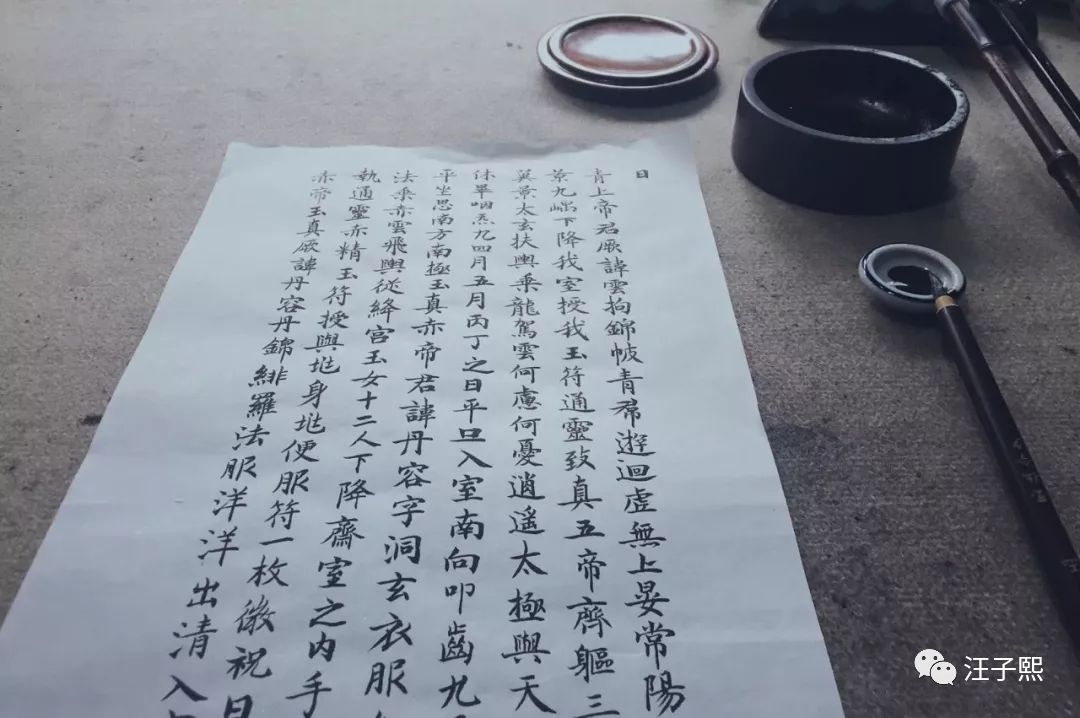 日
青上帝君厥諱雲拘錦帔青帬遊迴虛無上晏常陽
景九嵎下降我室授我玉符通靈致真五帝齊軀三
翼景太玄扶輿乘龍駕雲何慮何憂逍遥太極與天
休畢咽炁九四月五月丙丁之日平旦入室南向叩齒九
平坐思南方南極玉真赤帝君諱丹容字洞玄衣服
法乘赤雲飛輿從絳宫玉女十二人下降齋室之内手
執通靈赤精玉符授與垗身垗便服符一枚微祝曰
赤帝玉真厥諱丹容丹錦緋羅法服洋洋出清入
汪子熙